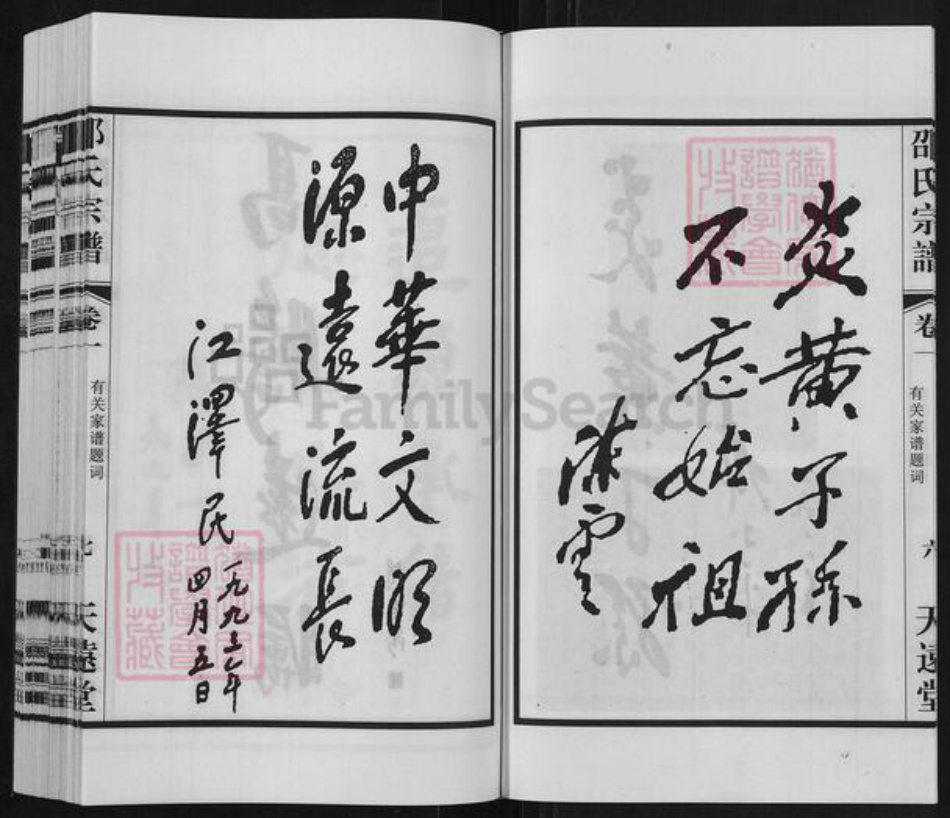 邵氏宗譜
卷一
有关家谱题词
六
天遠堂
炎黄子孫
不忘始祖
陳雲
中華文明
源遠流長
江澤民
一九九三年
四月五日
氏宗譜
卷一
有关家谱题词
七
天遠堂
譜學會
收藏
FamilySearch